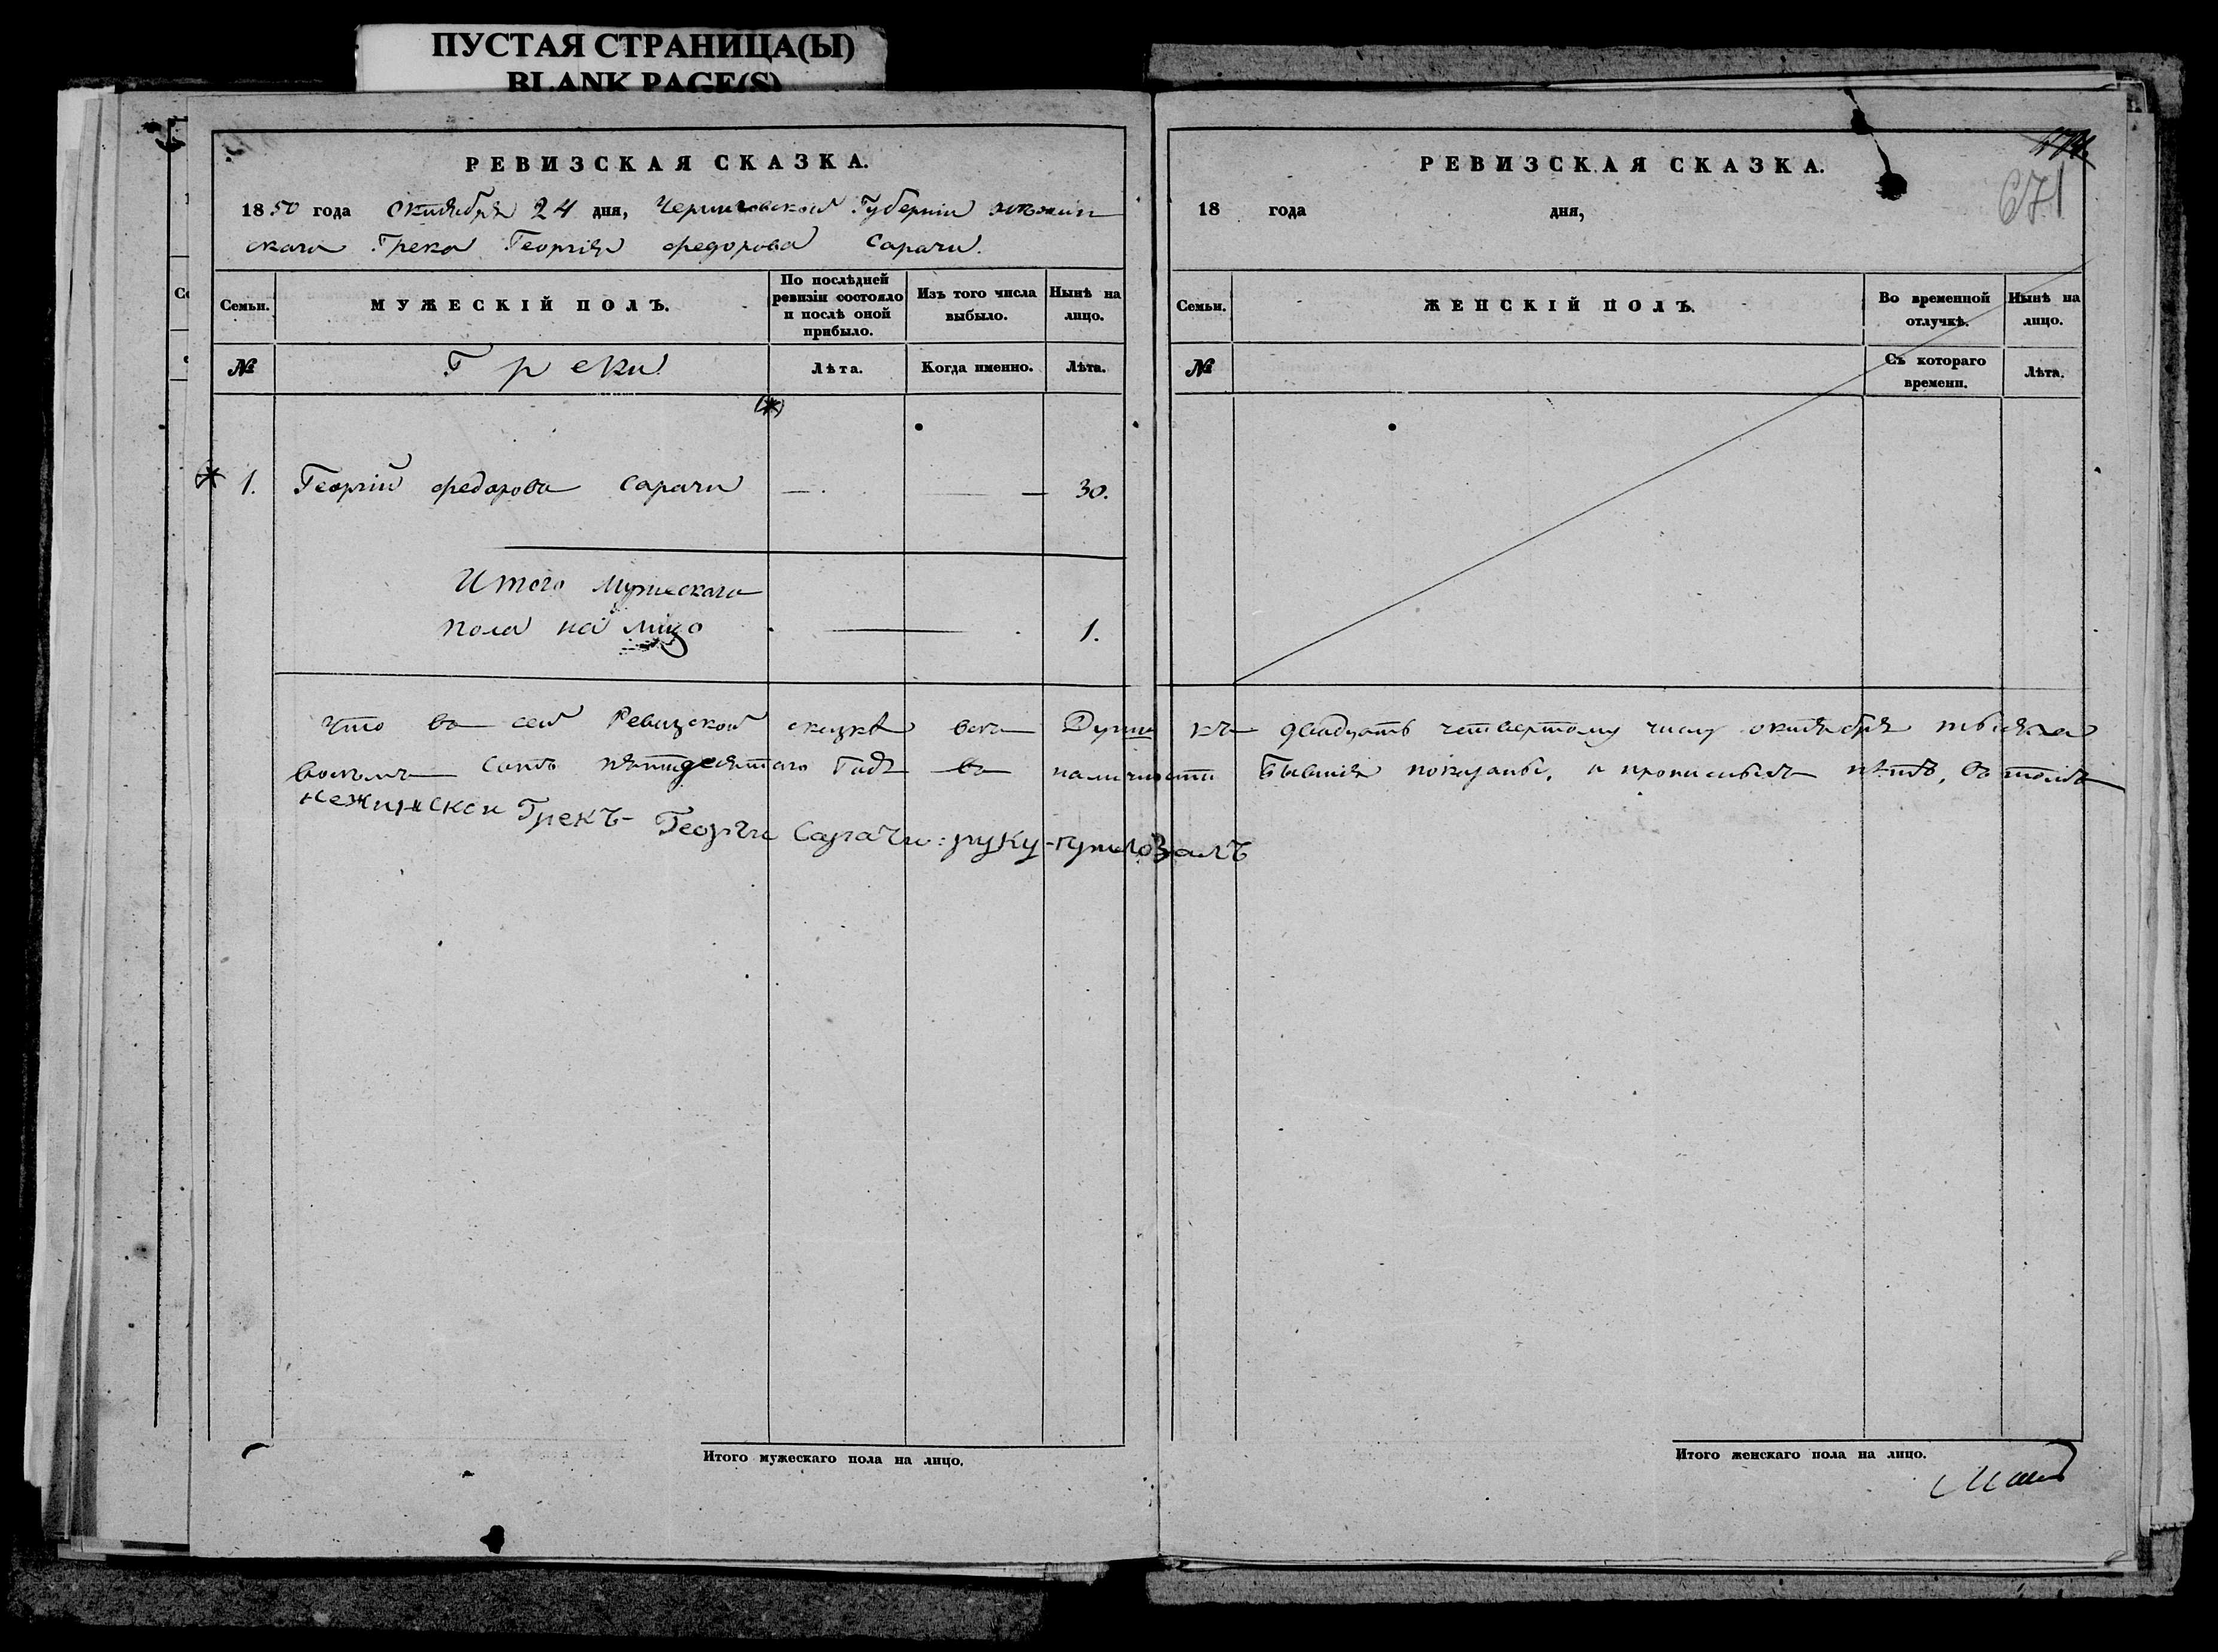 ПУСТАЯ СТРАНИЦА(Ы)
BLANK PAGE(S)
РЕВИЗСКАЯ СКАЗКА.
1850 года Октября 24 дня, Черниговской Губернии нѣжин
скаго Грека Георгія Федорова Сарачи.
Семьи.
МУЖЕСКІЙ ПОЛЪ.
По послѣдней
ревизіи состояло
и послѣ оной
прибыло.
Изъ того числа
выбыло.
Нынѣ на
лицо.
№
Греки
Лѣта.
Когда именно.
Лѣта.
(*)
* 1. Георгій Федоровъ Сарачи — — 30.
Итого Мужескаго
пола на лицо — 1.
Что въ сей Ревизской сказкѣ всѣ Души къ двадцать четвертому числу октября тысяча
восемь сотъ пятидесятого года въ наличности бывшія показаны, и прописныхъ нѣтъ, въ томъ
нежинскои Грекъ Георги Сарачи: руку приложалъ
Итого мужескаго пола на лицо.
РЕВИЗСКАЯ СКАЗКА.
671
18 года дня,
Семьи.
ЖЕНСКІЙ ПОЛЪ.
Во временной
отлучкѣ.
Нынѣ на
лицо.
№
Съ котораго
времени.
Лѣта.
Итого женскаго пола на лицо.